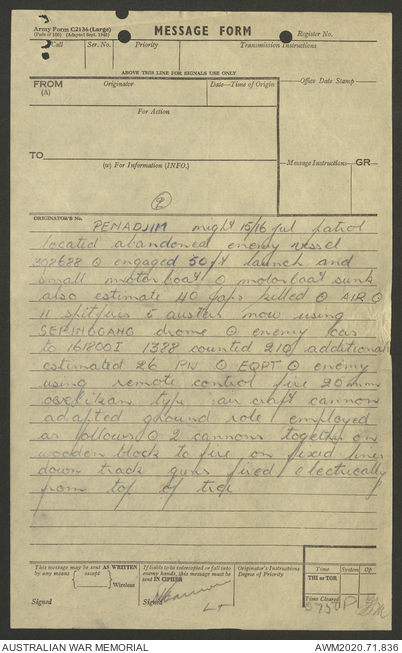 Army Form C2136 (Large)
(Pads of 100) (Adapted Sept. 1942)
MESSAGE FORM
Register No.
Call
Ser. No.
Priority
Transmission Instructions
ABOVE THIS LINE FOR SIGNALS USE ONLY
FROM
(A)
Originator
Date—Time of Origin
Office Date Stamp
For Action
TO
(W) For Information (INFO.)
Message Instructions
GR
2
ORIGINATOR'S No.
PENADJIM night 15/16 Jul patrol
located abandoned enemy vessel
302688 O engaged 50 ft launch and
small motor boat O motorboat sunk
also estimate 40 Japs killed O AIR O
11 spitfires 5 austers now using
SEPINGGANG drome O enemy cas
to 161800I 1388 counted 210 additional
estimated 26 PW O EQPT O enemy
using remote control fire 20 mm
oerlikan type air craft cannon
adapted ground role employed
as follows O 2 cannons together on
wooden block to fire on fixed lines
down track guns fired electrically
from top of tree
This message may be sent AS WRITTEN
by any means
except
Wireless
Signed
If liable to be intercepted or fall into
enemy hands, this message must be
sent IN CIPHER
Signed
Lt
Originator's Instructions
Degree of Priority
Time
System
Op
THI or TOR
Time Cleared
AUSTRALIAN WAR MEMORIAL
AWM2020.71.836